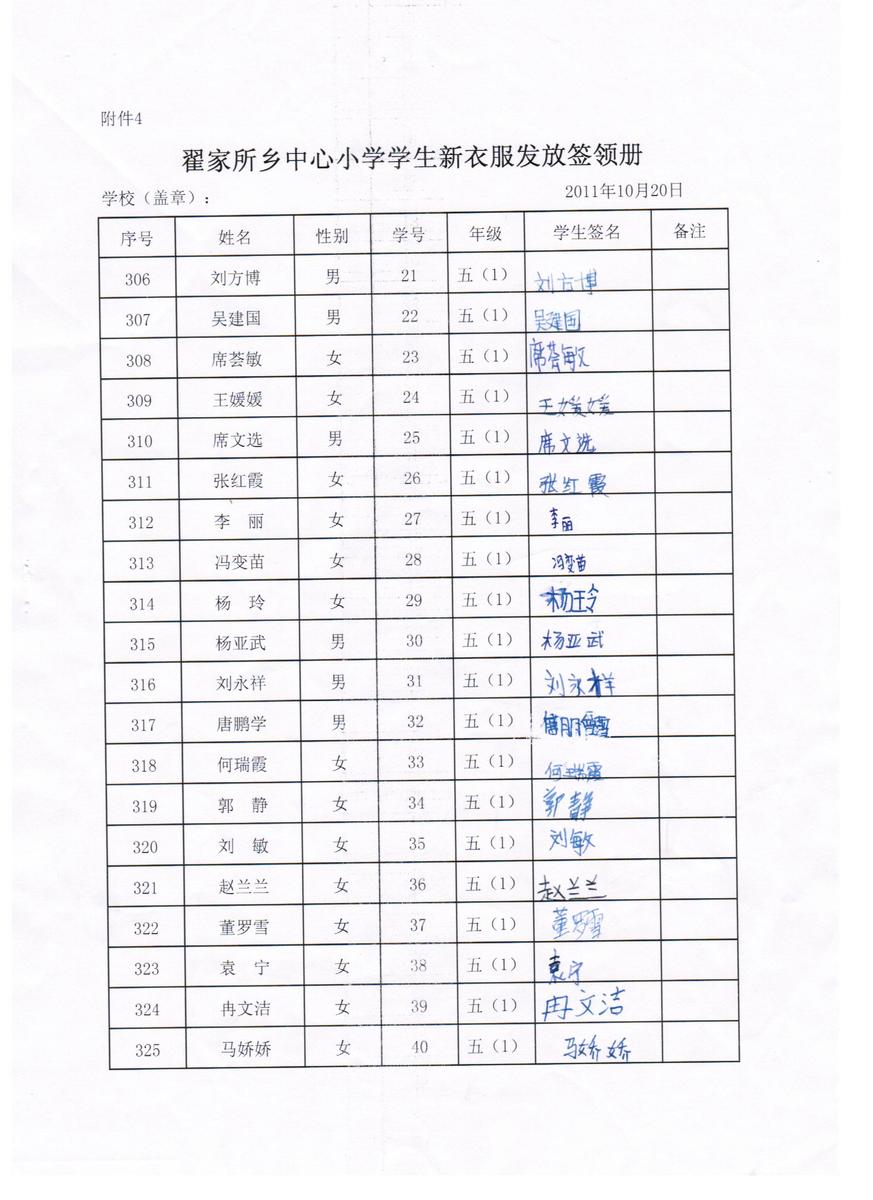 附件4
翟家所乡中心小学学生新衣服发放签领册
学校（盖章）： 2011年10月20日
序号 姓名 性别 学号 年级 学生签名 备注
306 刘方博 男 21 五（1） 刘方博
307 吴建国 男 22 五（1） 吴建国
308 席荟敏 女 23 五（1） 席荟敏
309 王媛媛 女 24 五（1） 王媛媛
310 席文选 男 25 五（1） 席文选
311 张红霞 女 26 五（1） 张红霞
312 李 丽 女 27 五（1） 李丽
313 冯变苗 女 28 五（1） 冯变苗
314 杨 玲 女 29 五（1） 杨玲
315 杨亚武 男 30 五（1） 杨亚武
316 刘永祥 男 31 五（1） 刘永祥
317 唐鹏学 男 32 五（1）
318 何瑞霞 女 33 五（1） 何瑞霞
319 郭 静 女 34 五（1） 郭静
320 刘 敏 女 35 五（1） 刘敏
321 赵兰兰 女 36 五（1） 赵兰兰
322 董罗雪 女 37 五（1） 董罗雪
323 袁 宁 女 38 五（1） 袁宁
324 冉文洁 女 39 五（1） 冉文洁
325 马娇娇 女 40 五（1） 马娇娇